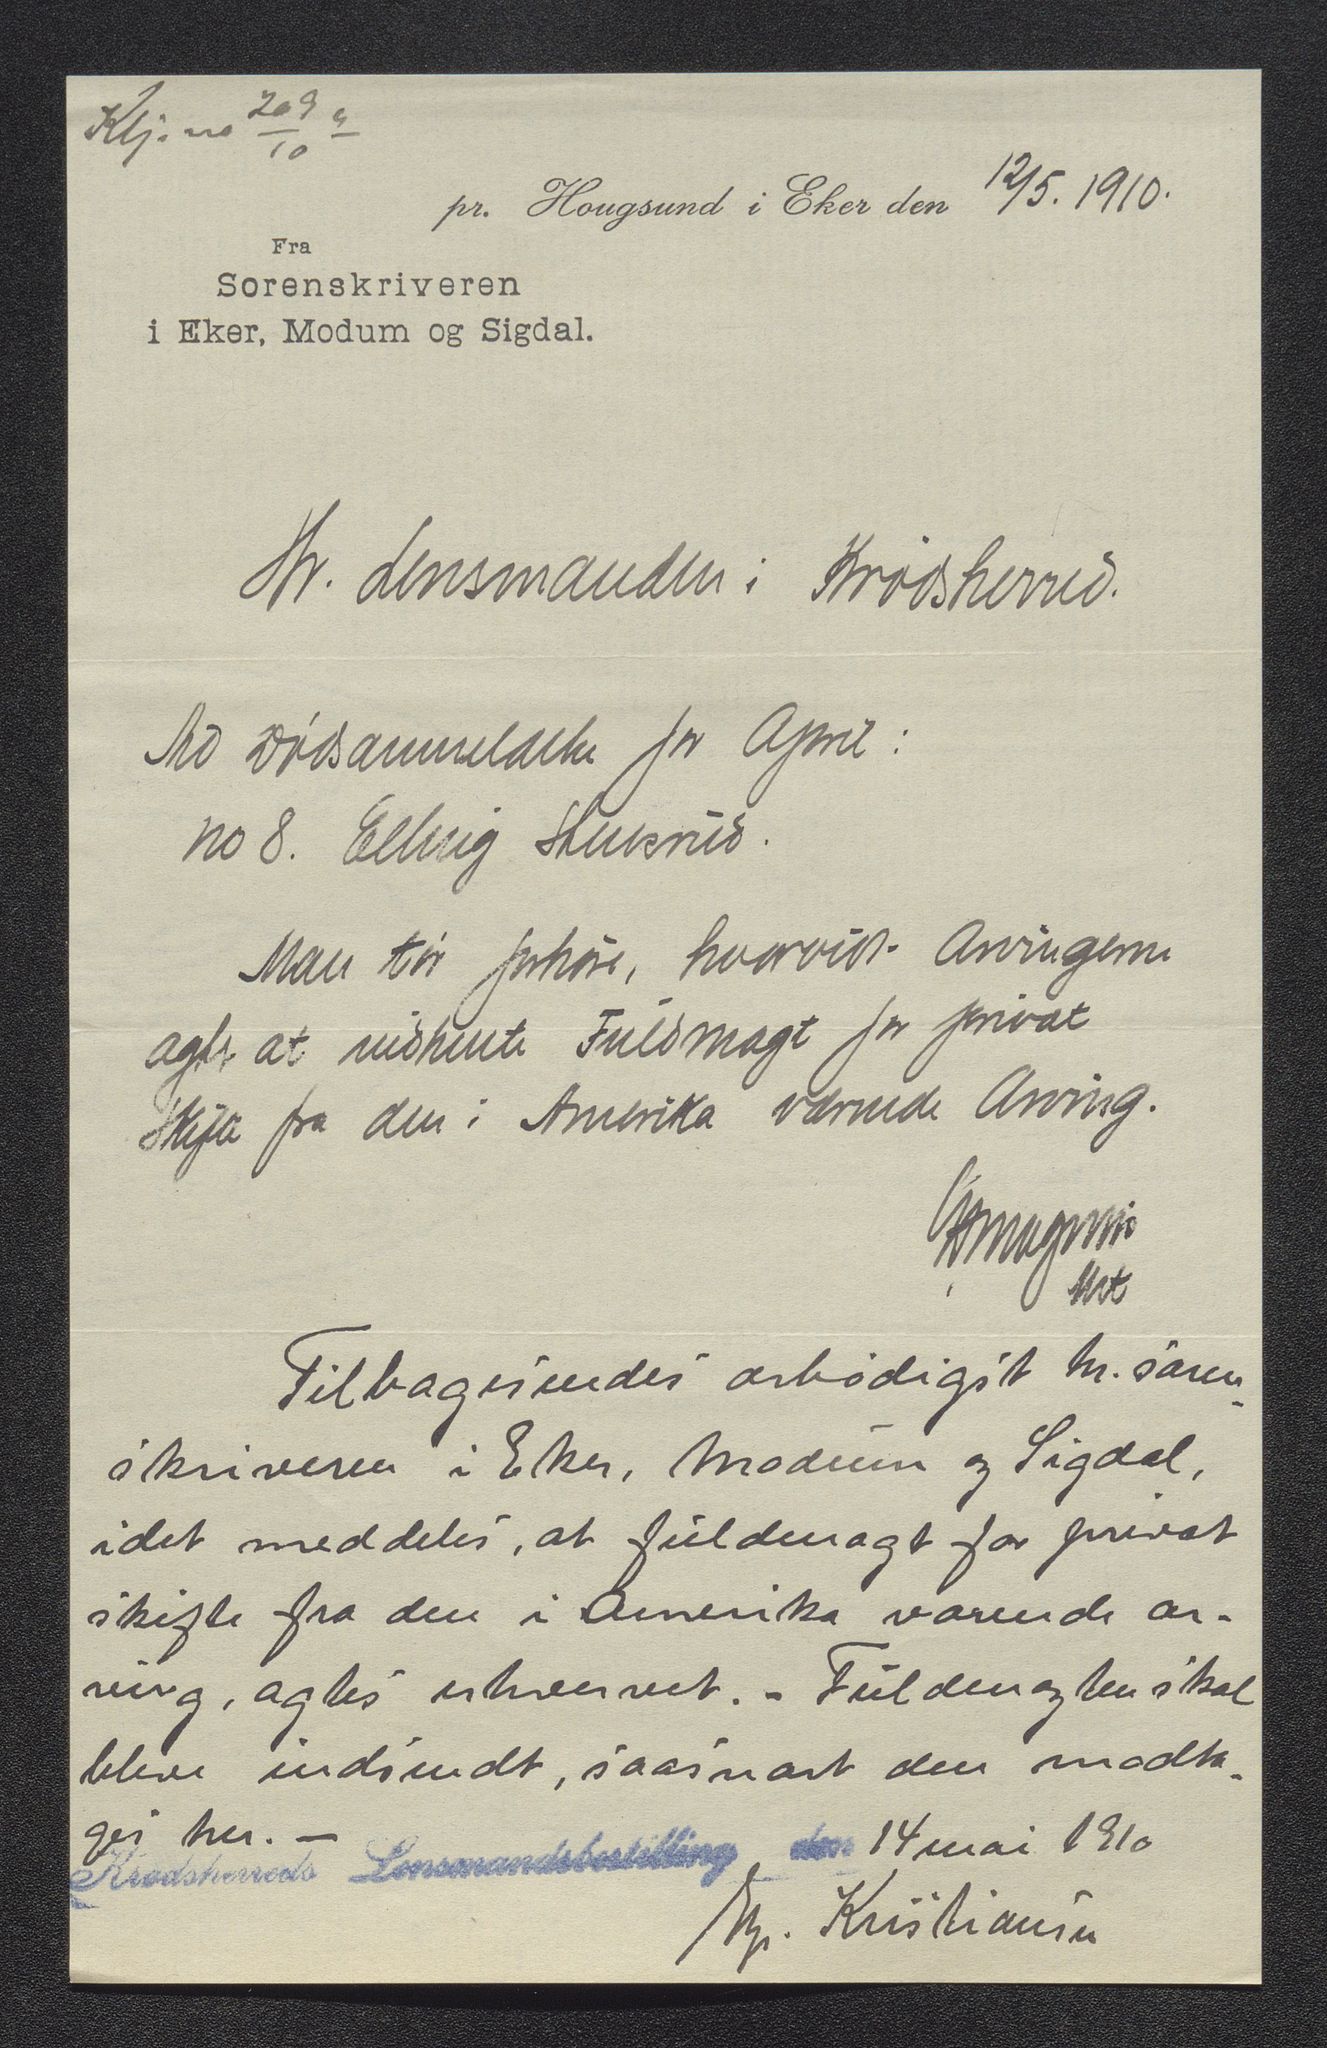 Klj. no 209/10
pr. Hougsund i Eker den 12/5. 1910.
Fra
Sorenskriveren
i Eker, Modum og Sigdal.
Hr. Lensmanden i Krødsherred.
Ad Dødsanmeldelse for April:
no 8.
Man tør forhøre, hvorvidt Arvingerne
agter at indhente Fuldmagt for privat
Skifte fra den i Amerika værende Arving.
Tilbagesendes ærbødigst hr. soren-
skriveren i Eker, Modum og Sigdal,
idet meddeles, at fuldmagt for privat
skifte fra den i Amerika værende ar-
ving, agtes erhvervet. - Fuldmagten skal
blive indsendt, saasnart den modta-
ges her. -
Krødsherreds Lensmandsbestilling den 14 mai 1910
Kristiansen